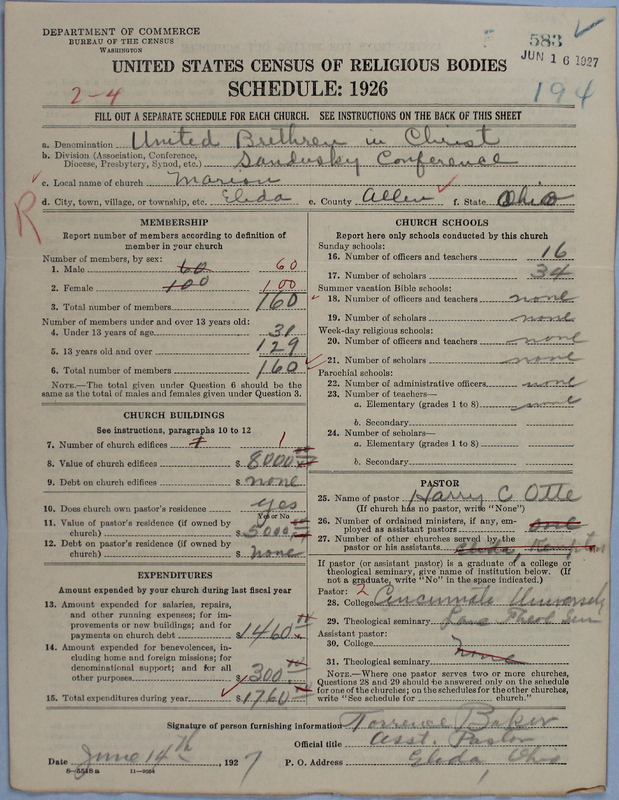 DEPARTMENT OF COMMERCE
BUREAU OF THE CENSUS
WASHINGTON
583
JUN 16 1927
UNITED STATES CENSUS OF RELIGIOUS BODIES
SCHEDULE: 1926
2-4
194
FILL OUT A SEPARATE SCHEDULE FOR EACH CHURCH. SEE INSTRUCTIONS ON THE BACK OF THIS SHEET
a. Denomination United Brethren in Christ
b. Division (Association, Conference, Diocese, Presbytery, Synod, etc.) Sandusky Conference
c. Local name of church Marion
d. City, town, village, or township, etc. Elida e. County Allen f. State Ohio
R
MEMBERSHIP
Report number of members according to definition of
member in your church
Number of members, by sex:
1. Male 60 60
2. Female 100 100
3. Total number of members 160
Number of members under and over 13 years old:
4. Under 13 years of age 31
5. 13 years old and over 129
6. Total number of members 160
NOTE.—The total given under Question 6 should be the
same as the total of males and females given under Question 3.
CHURCH BUILDINGS
See instructions, paragraphs 10 to 12
7. Number of church edifices 1 1
8. Value of church edifices $ 8000
9. Debt on church edifices $ none
10. Does church own pastor's residence yes
Yes or No
11. Value of pastor's residence (if owned by
church) $ 5000
12. Debt on pastor's residence (if owned by
church) $ none
EXPENDITURES
Amount expended by your church during last fiscal year
13. Amount expended for salaries, repairs,
and other running expenses; for im-
provements or new buildings; and for
payments on church debt $ 1460
14. Amount expended for benevolences, in-
cluding home and foreign missions; for
denominational support; and for all
other purposes $ 300
15. Total expenditures during year $ 1760
CHURCH SCHOOLS
Report here only schools conducted by this church
Sunday schools:
16. Number of officers and teachers 16
17. Number of scholars 34
Summer vacation Bible schools:
18. Number of officers and teachers none
19. Number of scholars none
Week-day religious schools:
20. Number of officers and teachers none
21. Number of scholars none
Parochial schools:
22. Number of administrative officers none
23. Number of teachers—
a. Elementary (grades 1 to 8) none
b. Secondary
24. Number of scholars—
a. Elementary (grades 1 to 8)
b. Secondary
PASTOR
25. Name of pastor Harry C Otte
(If church has no pastor, write "None")
26. Number of ordained ministers, if any, em-
ployed as assistant pastors one
27. Number of other churches served by the
pastor or his assistants Elida,
If pastor (or assistant pastor) is a graduate of a college or
theological seminary, give name of institution below. (If
not a graduate, write "No" in the space indicated.)
Pastor: 2
28. College Cincinnati University
29. Theological seminary Lane Theol Sem
Assistant pastor:
30. College
none
31. Theological seminary
NOTE.—Where one pastor serves two or more churches,
Questions 28 and 29 should be answered only on the schedule
for one of the churches; on the schedules for the other churches,
write "See schedule for church."
Signature of person furnishing information Torrence Baker
Official title Asst. Pastor
Date June 14th, 1927 P. O. Address Elida, Ohio
8—5518 a 11—9054